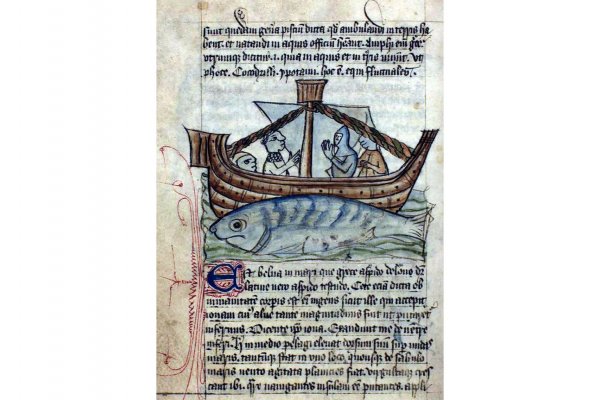 sunt quedam gena̅ pisciu̅ dicta qd̕ ambulandi in terris ha
bent. et natandi in aquis officiu̅ Amphi em̅
dicitur .i. quia in aquis et in uiuu̅t. vt
phoce. Cocodrilli. ypotami. hoc e̅. equi fluctuales.
Est belua in mari que grece aspido delone dr̅
latine uero aspido testudo. Cete eciam dicta ob
inmanitate̅ corpis est eni̅ ingens sicut ille qui accepit
ionam cui᷒ tante magnitudinis fuit ut
infernus. Dicente ip̅o iona. Exaudiuit me de ue̅tre
inferi. in medio pelagi eleuat dorsum suu̅ undas
maris. stat in uno loco. quousq̷ de sabulo
maris vento agitata planicies fiat. cres
cant ibi. nauigantes insulam ee̅ putantes. appli